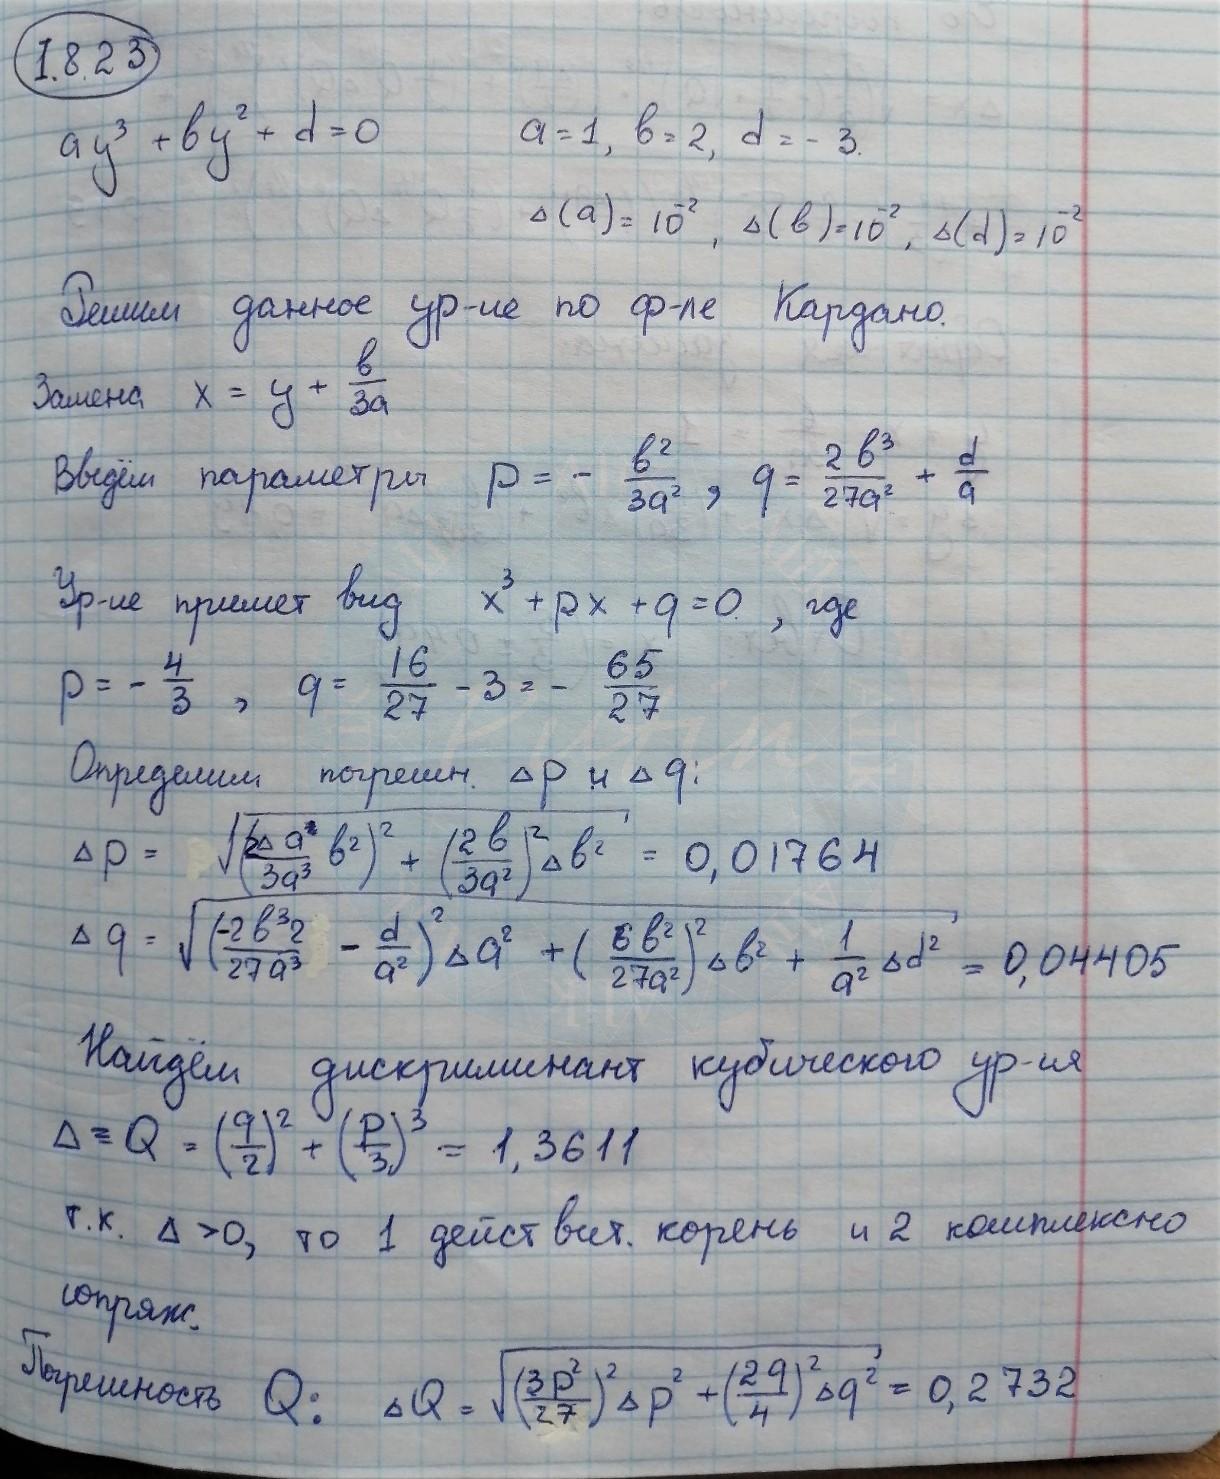 1.8.23
ay³ + by² + d = 0    a = 1, b = 2, d = - 3.
Δ(a) = 10⁻², Δ(b) = 10⁻², Δ(d) = 10⁻²
Решим данное ур-ие по ф-ле Кардано.
Замена x = y + b/3a
Введём параметры p = - b²/3a², q = 2b³/27a² + d/a
Ур-ие примет вид x³ + px + q = 0, где
p = - 4/3, q = 16/27 - 3 = - 65/27
Определим погрешн. Δp и Δq:
Δp = √((2Δa/3a³ b²)² + (2b/3a²)² Δb²) = 0,01764
Δq = √((-2b³2/27a³ - d/a²)² Δa² + (6b²/27a²)² Δb² + 1/a² Δd²) = 0,04405
Найдём дискриминант кубического ур-ия
Δ ≡ Q = (q/2)² + (p/3)³ = 1,3611
т.к. Δ > 0, то 1 действит. корень и 2 комплексно
сопряж.
Погрешность Q: ΔQ = √((3p²/27)² Δp² + (2q/4)² Δq²) = 0,2732